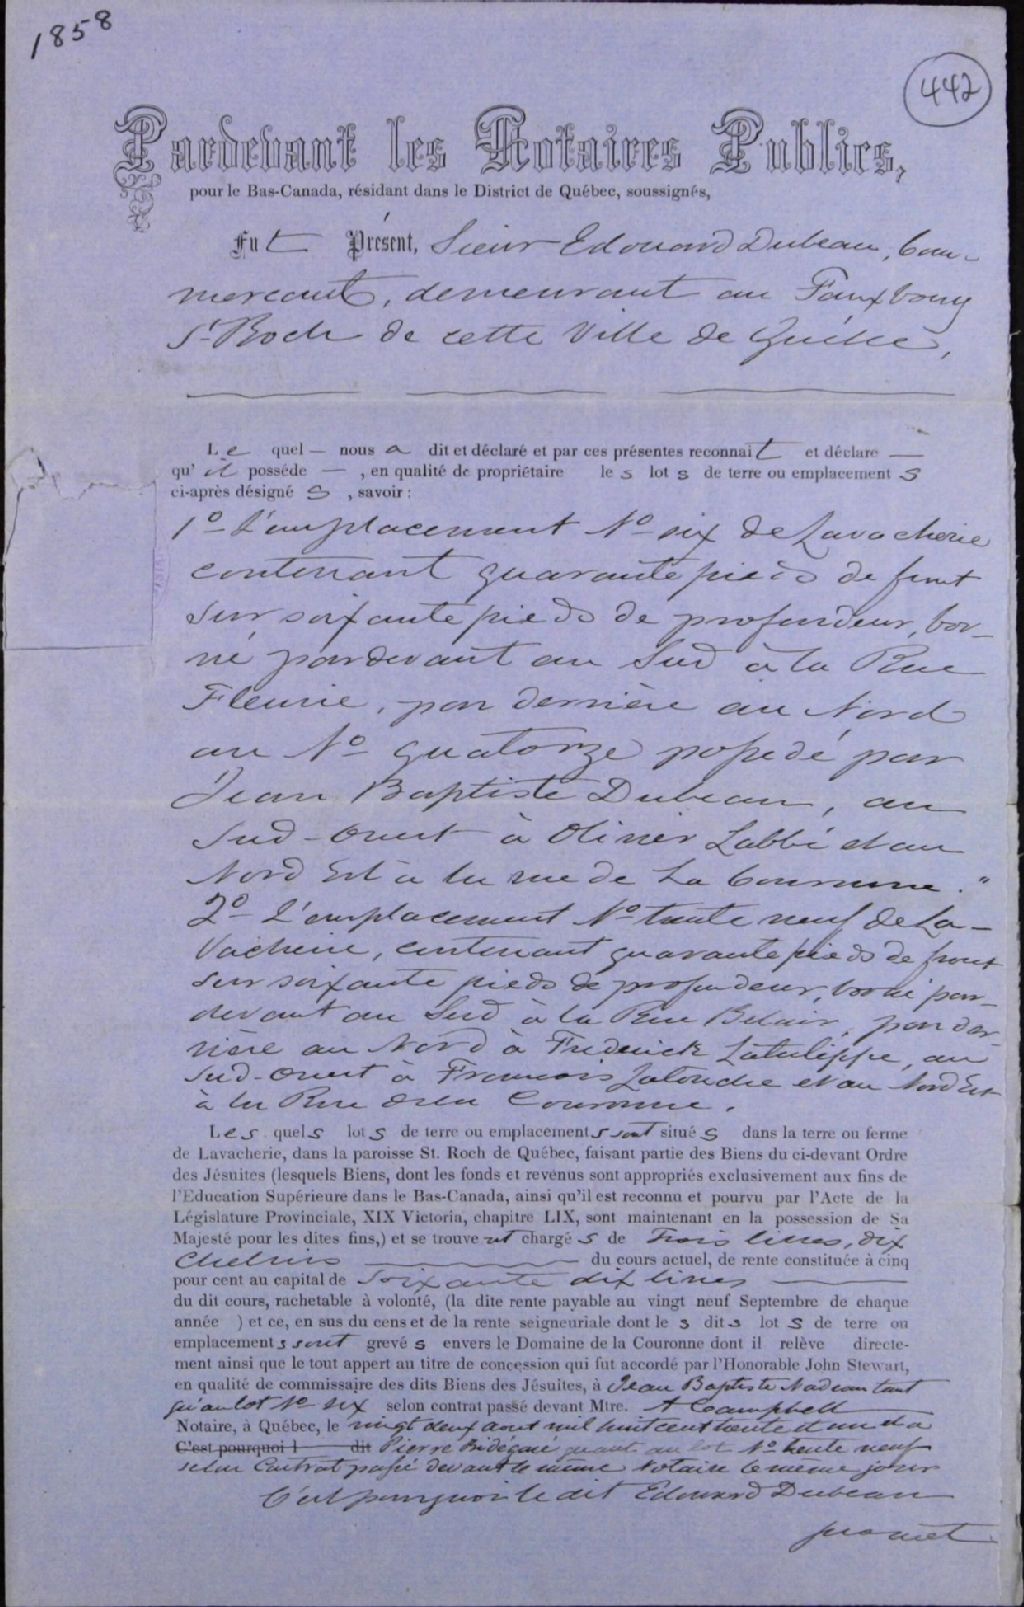 1858
442
Pardevant les Notaires Publics,
pour le Bas-Canada, résidant dans le District de Québec, soussignés,
Fut Présent, Sieur Edouard Dubeau, Com-
mercant, demeurant au Fauxbourg
St Roch de cette Ville de Québec,
Le quel — nous a dit et déclaré et par ces présentes reconnait et déclare —
qu' il posséde — , en qualité de propriétaire le s lot s de terre ou emplacement s
ci-après désigné s , savoir :
1o L'emplacement No six de Lavacherie
contenant quarante pieds de front
sur soixante pieds de profondeur, bor-
né pardevant au Sud à la Rue
Fleurie, par derrière au Nord
au No quatorze possedé par
Jean Baptiste Dubeau, au
Sud-Ouest à Olivier Labbé et au
Nord Est à la rue de La Couronne."
2o L'emplacement No trente neuf de La-
Vacherie, contenant quarante pieds de front
sur soixante pieds de profondeur, borné par-
devant au Sud à la Rue Belair, par der-
rière au Nord à Frederick Latulippe, au
Sud-Ouest à Francois Latouche et au Nord Est
à la Rue de la Couronne.
Les quels lot s de terre ou emplacement s sont situé s dans la terre ou ferme
de Lavacherie, dans la paroisse St. Roch de Québec, faisant partie des Biens du ci-devant Ordre
des Jésuites (lesquels Biens, dont les fonds et revenus sont appropriés exclusivement aux fins de
l'Education Supérieure dans le Bas-Canada, ainsi qu'il est reconnu et pourvu par l'Acte de la
Législature Provinciale, XIX Victoria, chapitre LIX, sont maintenant en la possession de Sa
Majesté pour les dites fins,) et se trouve nt chargé s de Trois livres, dix
Chelins du cours actuel, de rente constituée à cinq
pour cent au capital de Soixante dix livres
du dit cours, rachetable à volonté, (la dite rente payable au vingt neuf Septembre de chaque
année ) et ce, en sus du cens et de la rente seigneuriale dont le s dit s lot s de terre ou
emplacement s sont grevé s envers le Domaine de la Couronne dont il relève directe-
ment ainsi que le tout appert au titre de concession qui fut accordé par l'Honorable John Stewart,
en qualité de commissaire des dits Biens des Jésuites, à Jean Baptiste Nadeau tant
qu'au lot No six selon contrat passé devant Mtre. A Campbell
Notaire, à Québec, le vingt deux aout mil huit cent trente et un et a
C'est pourquoi l dit Pierre Bidégaré quant au lot No trente neuf
selon Contrat passé devant le même Notaire le même jour
C'est pourquoi le dit Edouard Dubeau
promet